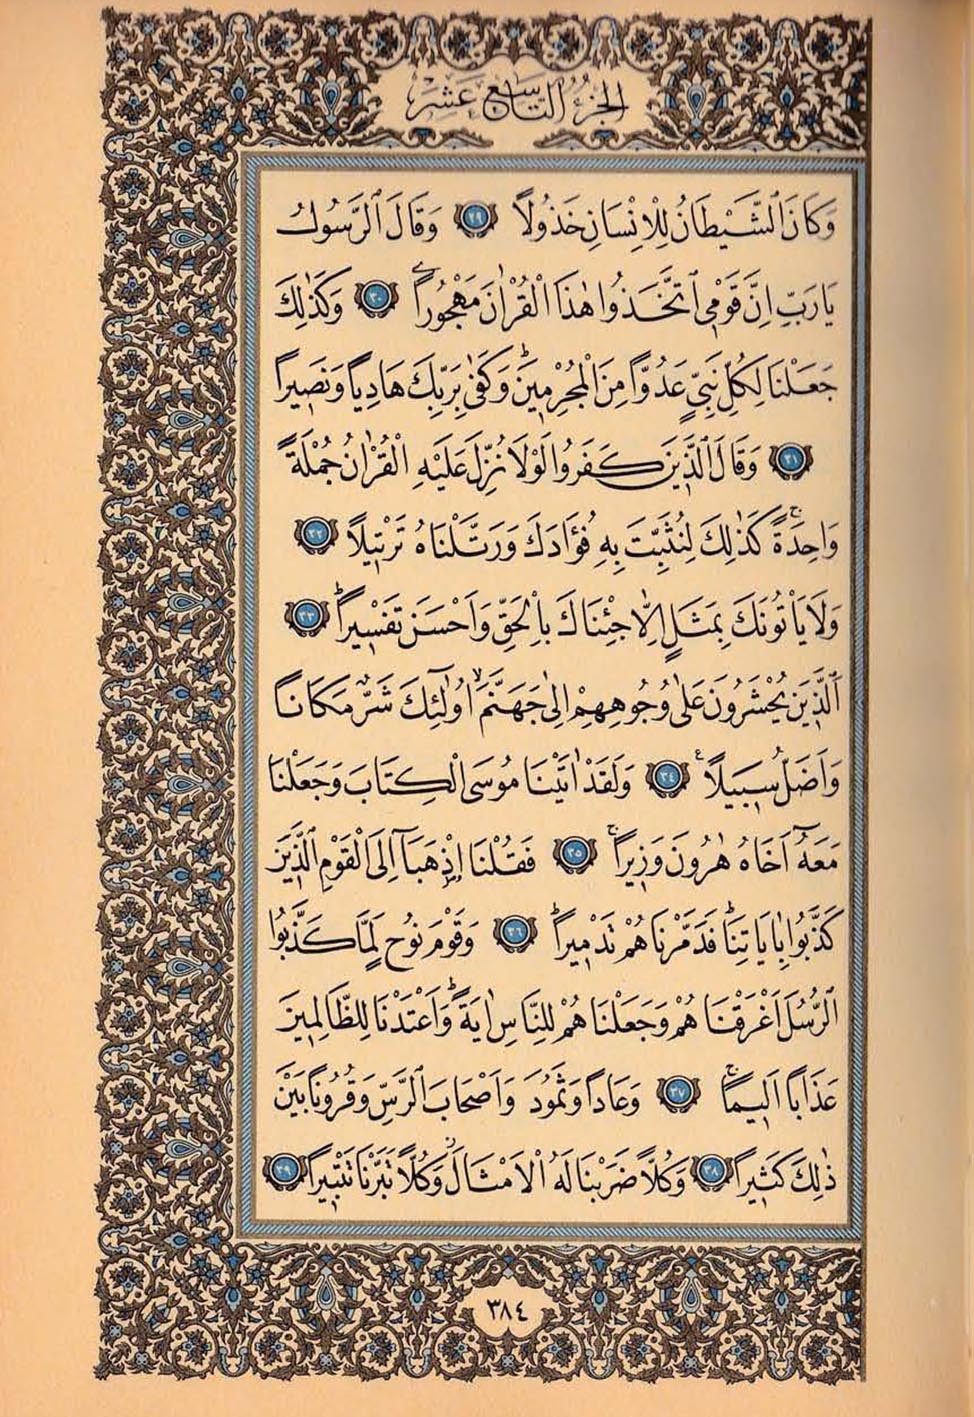 الجزء التاسع عشر
وَكَانَ ٱلشَّيْطَانُ لِلْاِنْسَانِ خَذُولاً ﴿٢٩﴾ وَقَالَ ٱلرَّسُولُ
يَارَبِّ اِنَّ قَوْمِي ٱتَّخَذُوا هٰذَا الْقُرْاٰنَ مَهْجُوراً ﴿٣٠﴾ وَكَذٰلِكَ
جَعَلْنَا لِكُلِّ نَبِيٍّ عَدُوًّا مِنَ الْمُجْرِمِينَ وَكَفٰى بِرَبِّكَ هَادِيًا وَنَصِيراً
﴿٣١﴾ وَقَالَ ٱلَّذِينَ كَفَرُوا لَوْلَا نُزِّلَ عَلَيْهِ الْقُرْاٰنُ جُمْلَةً
وَاحِدَةً كَذٰلِكَ لِنُثَبِّتَ بِهِ فُؤَادَكَ وَرَتَّلْنَاهُ تَرْتِيلاً ﴿٣٢﴾
وَلَا يَأْتُونَكَ بِمَثَلٍ اِلَّا جِئْنَاكَ بِالْحَقِّ وَاَحْسَنَ تَفْسِيراً ﴿٣٣﴾
ٱلَّذِينَ يُحْشَرُونَ عَلٰى وُجُوهِهِمْ اِلٰى جَهَنَّمَ اُولٰئِكَ شَرٌّ مَكَانًا
وَاَضَلُّ سَبِيلاً ﴿٣٤﴾ وَلَقَدْ اٰتَيْنَا مُوسَى الْكِتَابَ وَجَعَلْنَا
مَعَهُٓ اَخَاهُ هٰرُونَ وَزِيراً ﴿٣٥﴾ فَقُلْنَا اِذْهَبَٓا اِلَى الْقَوْمِ ٱلَّذِينَ
كَذَّبُوا بِاٰيَاتِنَا فَدَمَّرْنَاهُمْ تَدْمِيراً ﴿٣٦﴾ وَقَوْمَ نُوحٍ لَمَّا كَذَّبُوا
ٱلرُّسُلَ اَغْرَقْنَاهُمْ وَجَعَلْنَاهُمْ لِلنَّاسِ اٰيَةً وَاَعْتَدْنَا لِلظَّالِمِينَ
عَذَابًا اَلِيمًا ﴿٣٧﴾ وَعَادًا وَثَمُودَ وَاَصْحَابَ ٱلرَّسِّ وَقُرُونًا بَيْنَ
ذٰلِكَ كَثِيراً ﴿٣٨﴾ وَكُلًّا ضَرَبْنَا لَهُ الْاَمْثَالَ وَكُلًّا تَبَّرْنَا تَتْبِيراً ﴿٣٩﴾
٣٨٤